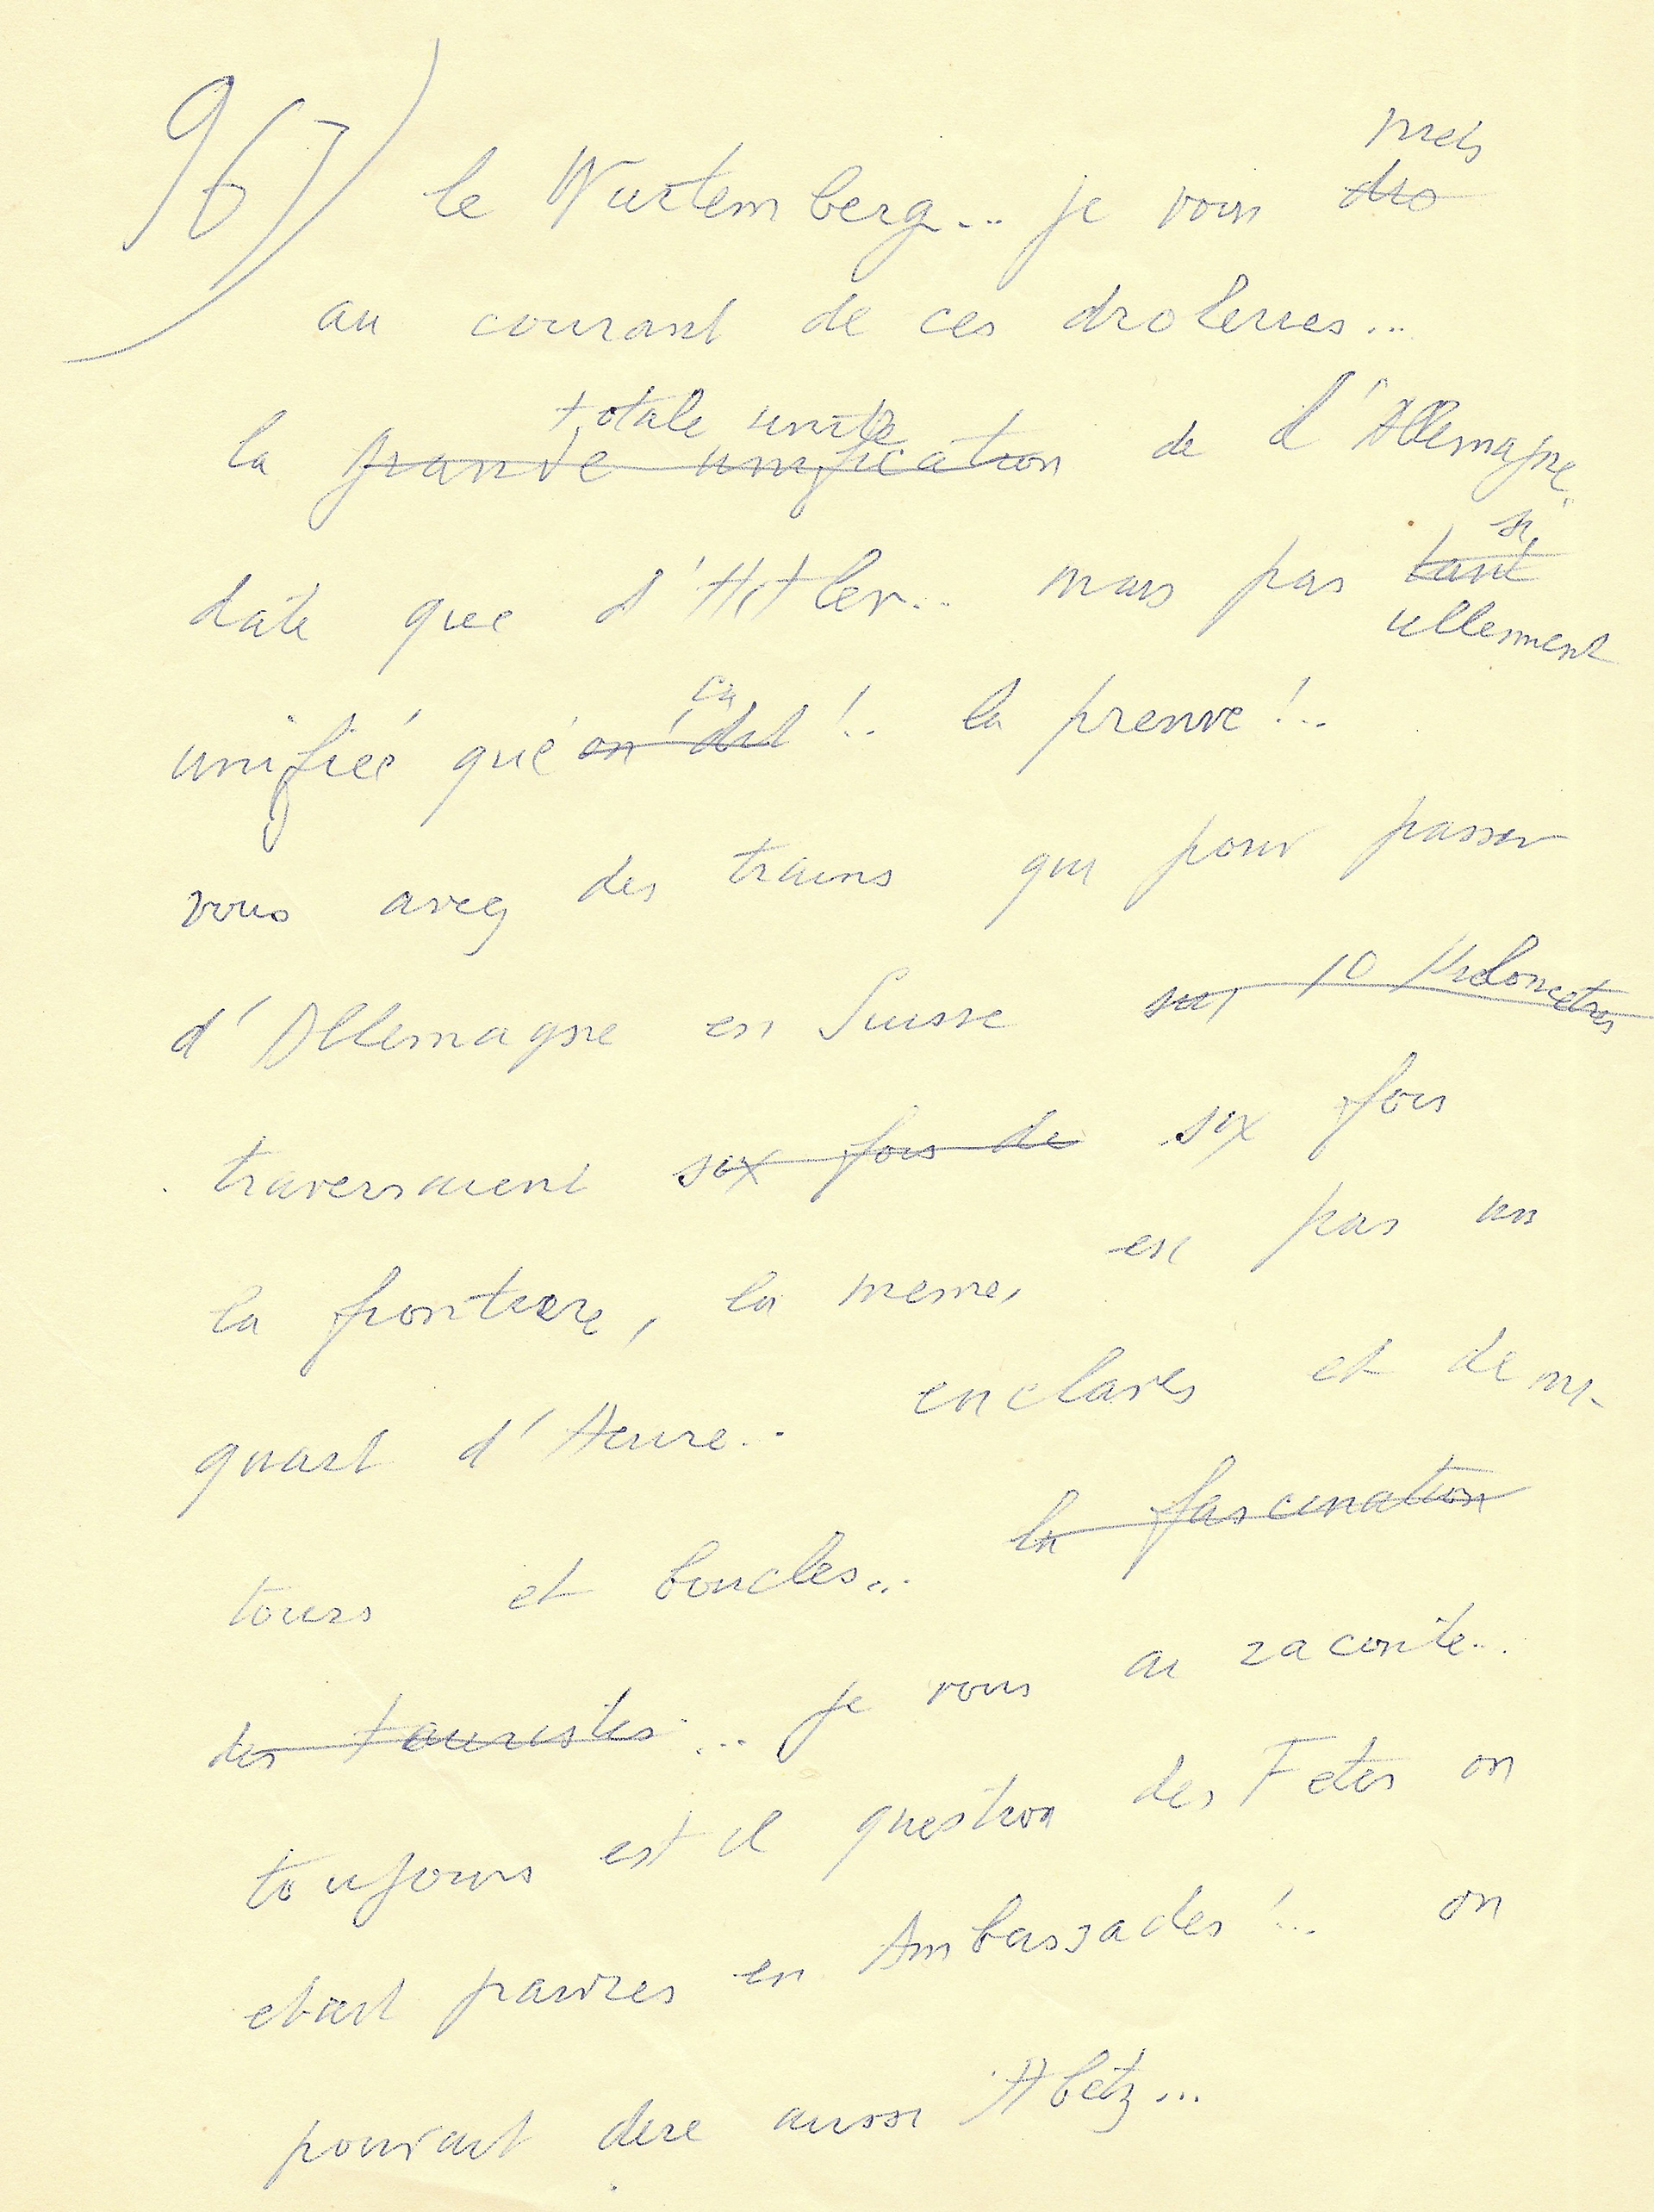 967)
mets
le Wurtemberg... je vous dro
au courant de ces droleries...
totale unité
la grande unification de l'Allemagne
date que d'Hitler... mais pas tant
si
ullement
unifiée que on dit !.. la preuve !..
ça
vous avez des trains qui pour passer
d'Allemagne en Suisse sur 10 Kilometres
traversaient six fois de six fois
la frontiere, la meme, en pas un
quart d'Heure... enclaves et demi-
tours et boucles... la fascination
des touristes... je vous ai raconte...
toujours est il question des Fetes on
etait pauvres en Ambassades !... on
pouvait dire aussi Abetz...